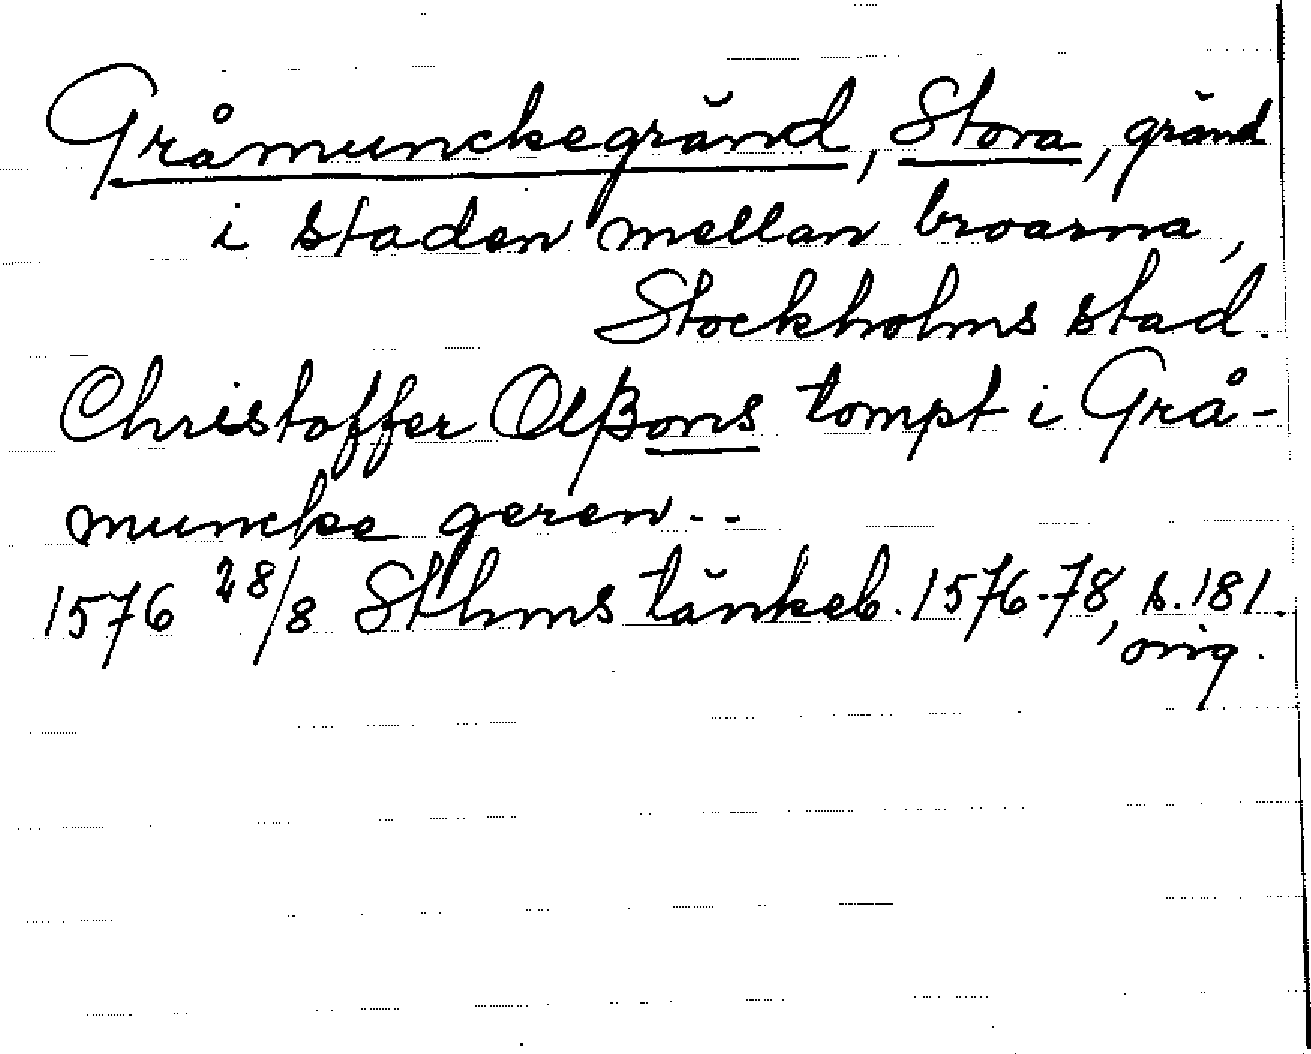 Gråmunckegränd, Stora, gränd
i staden mellan broarna,
Stockholms stad.
Christoffer Olßons tompt i Grå-
muncke geren..
1576 28/8 Sthms tänkeb. 1576-78, s. 181.
orig.